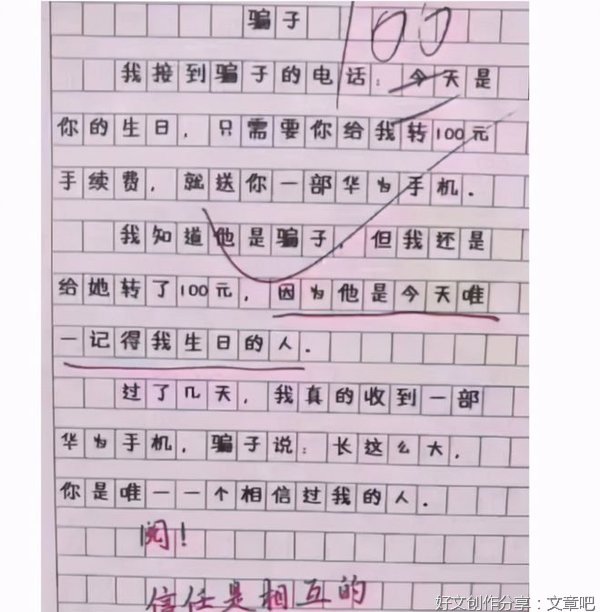 骗子
100
我接到骗子的电话：今天是
你的生日，只需要你给我转100元
手续费，就送你一部华为手机.
我知道他是骗子，但我还是
给她转了100元，因为他是今天唯
一记得我生日的人.
过了几天，我真的收到一部
华为手机，骗子说：长这么大，
你是唯一一个相信过我的人.
阅！
信任是相互的
好文创作分享：文章吧